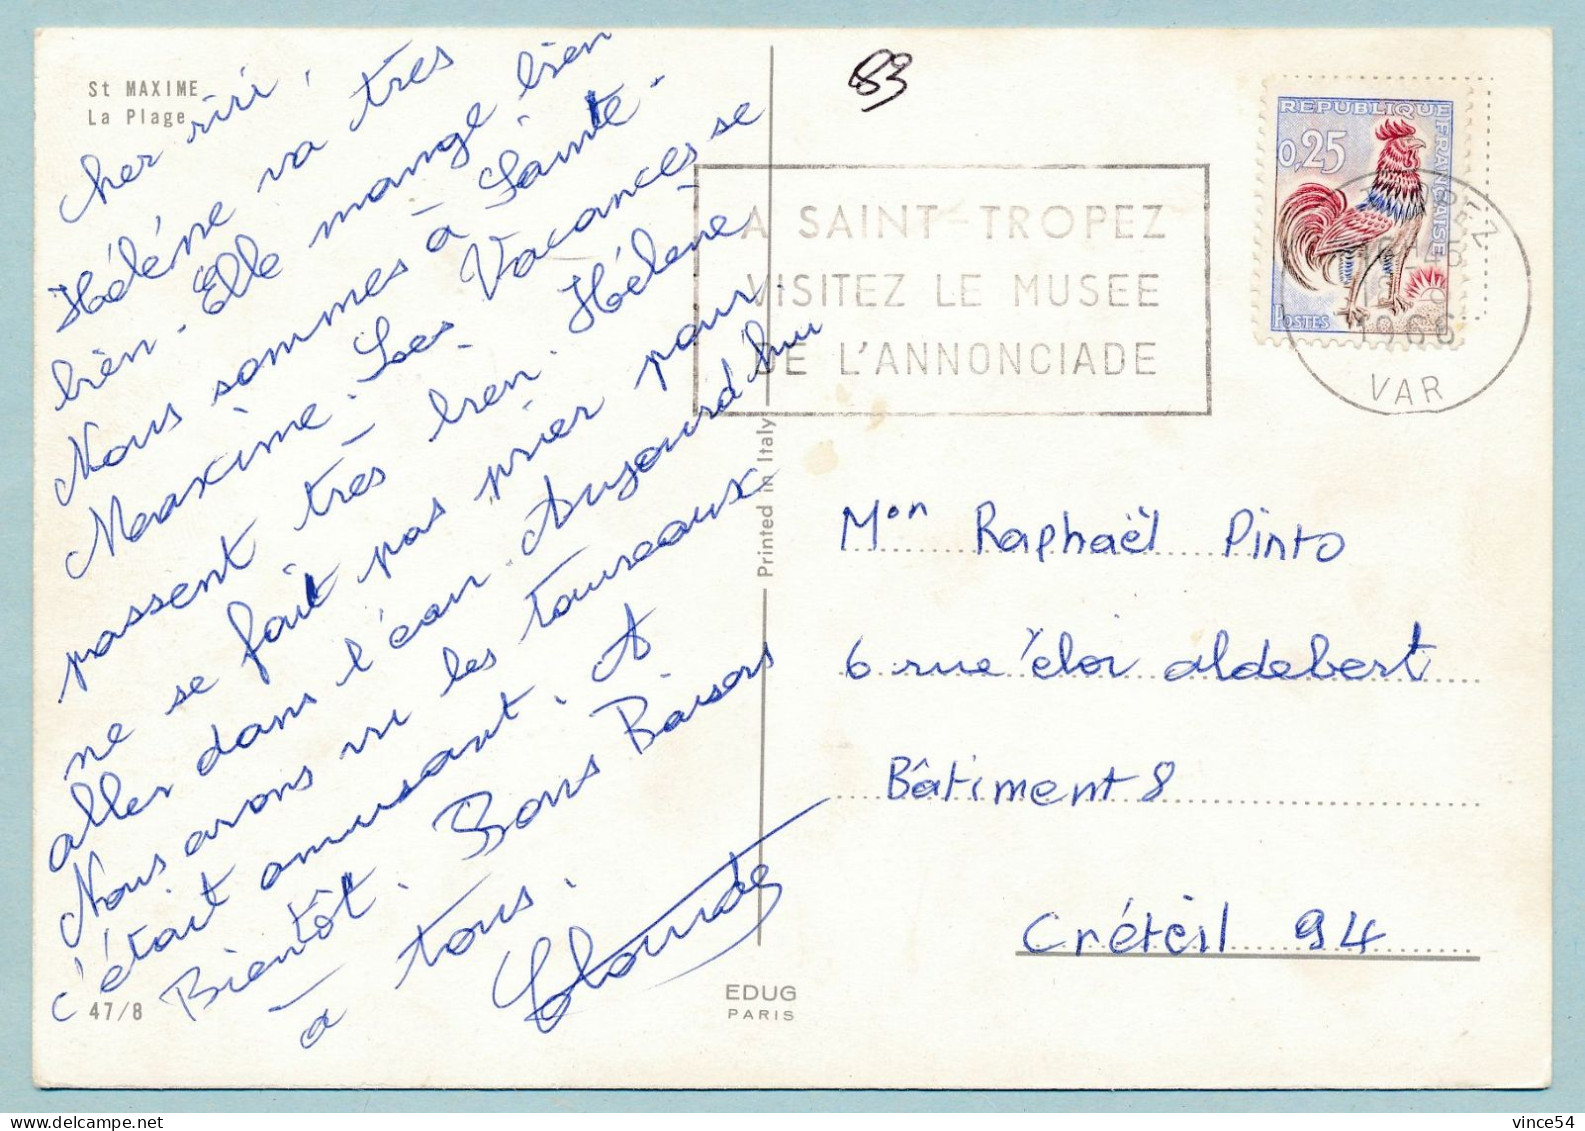 St MAXIME
La Plage
cher riri,
Hélène va très
bien. Elle mange bien
Nous sommes à Sainte.
Maxime. Les Vacances se
passent très bien. Hélène
ne se fait pas prier pour
aller dans l'eau. Aujourd'hui
Nous avons vu les taureaux
c'était amusant. A
Bientôt. Bons Baisers
à tous.
Claude
47/8
83
REPUBLIQUE FRANÇAISE
0,25
POSTES
A SAINT-TROPEZ
VISITEZ LE MUSEE
DE L'ANNONCIADE
1966
VAR
Printed in Italy
EDUG
PARIS
Mon Raphaël Pinto
6 rue éloi aldebert
Bâtiment 8
Créteil 94
vince54